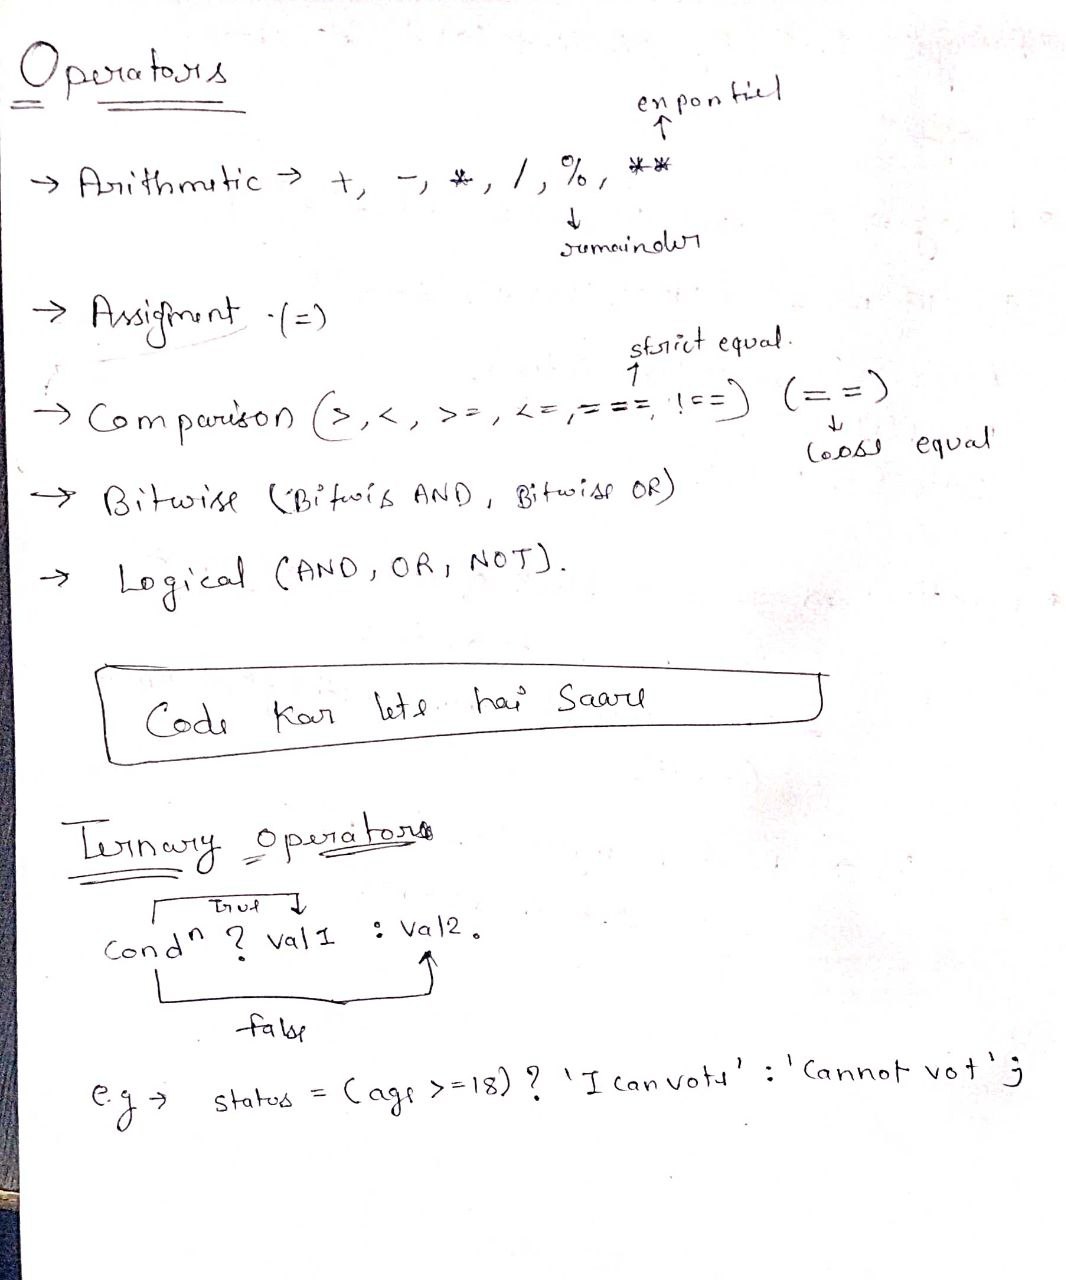 Operators
enpontiel
↑
→ Arithmetic → +, -, *, /, %, **
↓
remainder
→ Assigment (=)
strict equal.
↑
→ Comparison (>, <, >=, <=, ===, !==) (==)
↓
loose equal
→ Bitwise (Bitwis AND, Bitwise OR)
→ Logical (AND, OR, NOT).
Code kar lete hai Saare
Ternary operators
true
Condⁿ ? val1 : val2.
false
e.g → status = (age >=18) ? 'I can vote' : 'Cannot vot';